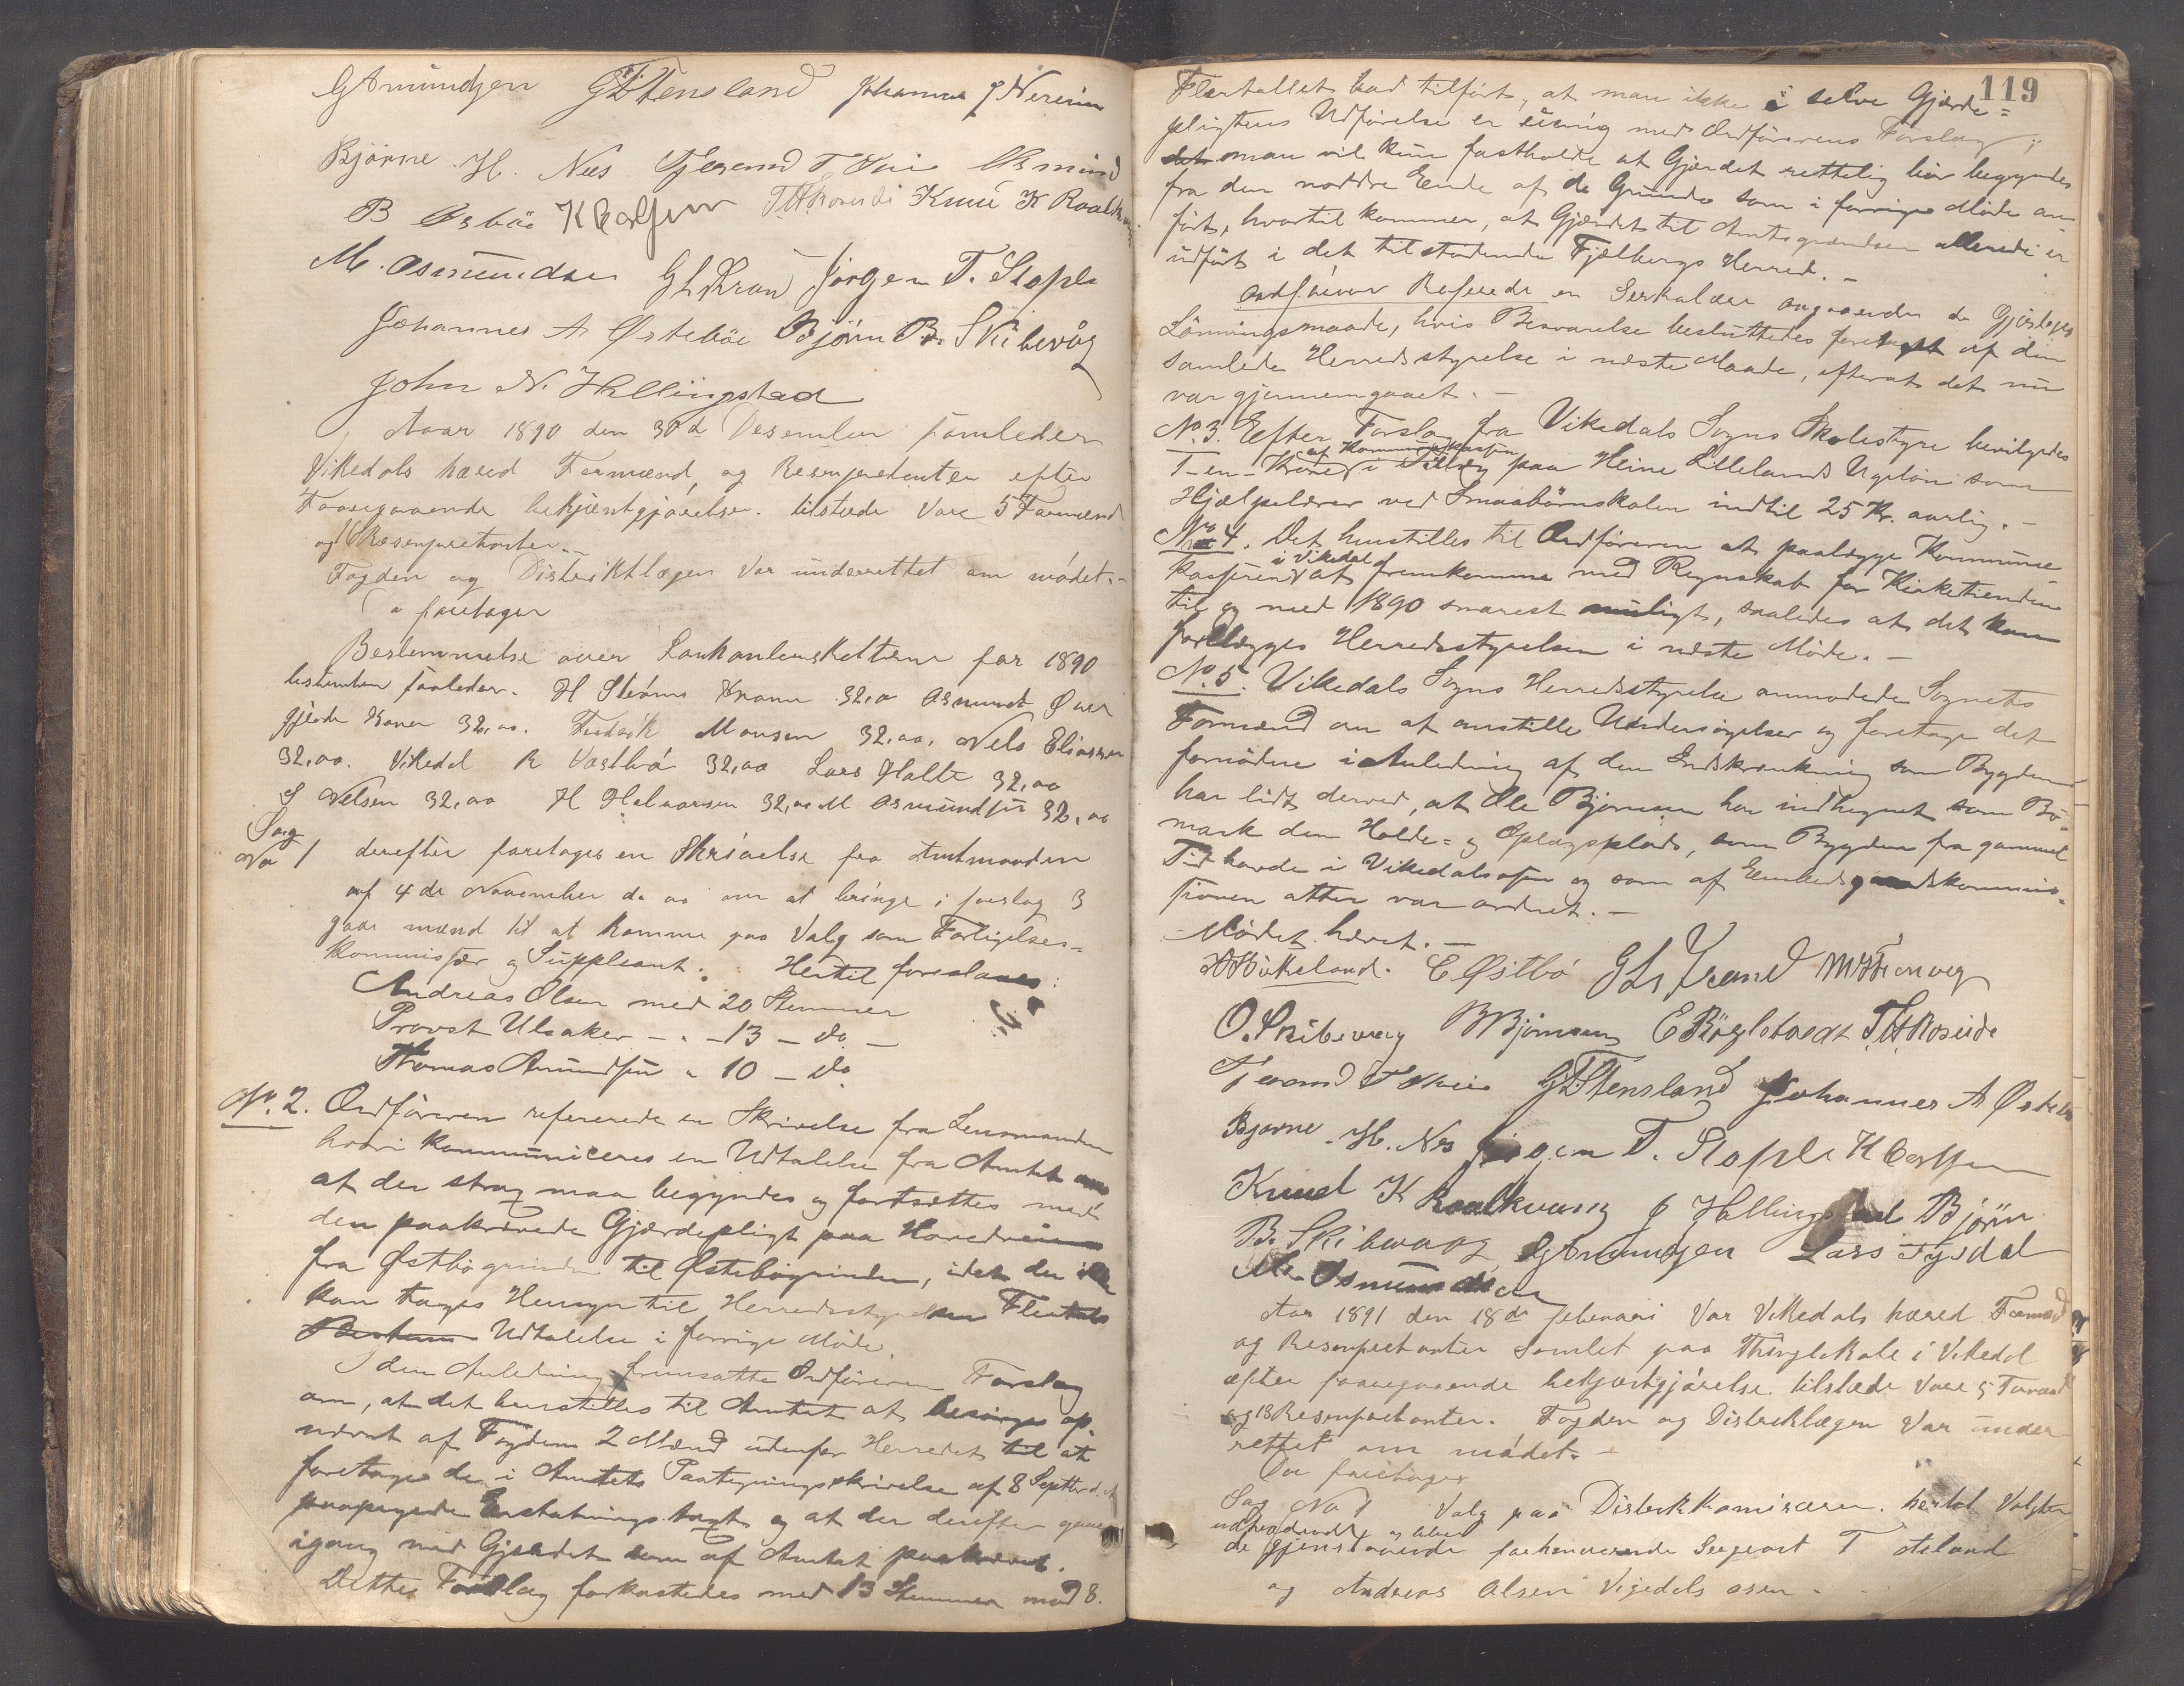 G Amundsen G T Stensland Johannes J Nereim
Bjørne H. Næs Tjerand T Øvie Asmund
B Østbøe K Carlsen T H Roseide Knud K Raalkvang
M. Osmundsen G L Krand Jørgen T. Stople
Johannes A Østebøe Bjørn B. Skibevåg
John N. Hallingstad
Aaar 1890 den 30d Desember samledes
Vikedals hæred Formænd, og Resenpretenter efter
Foregaaende bekjentgjørelse. tilstede Vare 5 Formænd
og 16 Resenpretenter.
Fogden og Distriktlægen Var underrettet om mødet.
Da foretoges
Bestemmelse over for 1890
bestemtes saaledes. H Strøms Krone 32,00 Asmund Øvre
gjerde Koner 32,00. Fredrik Monsen 32,00, Nels Eliassen
32,00. Vikedal R Vestbø 32,00 Lars Halte 32,00
S Nelsen 32,00 H Halvorsen 32,00 M Asmundsen 32,00
Sag
No 1 derefter foretoges en Skrivelse fra Amtmanden
af 4de November d. aa om at bringe i forslag 3
gode mænd til at komme paa Valg som Forligelses-
Kommissær og Suppleant. Hertil foresloges:
Andreas Olsen med 20 Stemmer
Provst Ulsaker - " - 13 - do -
Thomas Amundsen " 10 - do
No. 2. Ordføreren refererede en Skrivelse fra Lensmanden
hvori kommuniceres en Udtalelse fra Amtet om
at der strax maa begyndes og fortsættes med
den paakrævede Gjærdepligt paa Hovedveien
fra Østbøgrinden til Østebøgrinden, idet der ikke
kan tages Hensyn til Herredsstyrelsens Flertals
Udtalelse i forrige Møde.
I den Anledning fremsatte Ordføreren Forslag
om, at det henstilles til Amtet at besørge op-
nævnt af Fogden 2 Mænd udenfor Herredet til at
foretage den i Amtets Paategningsskrivelse af 8 Septbr d. A
paapegede Erstatningstaxt og at der derefter gaaes
igang med Gjerdet som af Amtet paakrævet.
Dette Forslag forkastedes med 13 Stemmer mod 8.
119
Flertallet bad tilført, at man ikke i selve Gjærde=
pligtens Udførelse er uenig med Ordførerens Forslag;
det man vil kun fastholde at Gjerdet rettelig bør begyndes
fra den nordre Ende af de Grunde som i forrige Møde an-
ført, hvortil kommer, at Gjærdet til Amtsgrændsen allerede er
udført i det tilstødende Fjelbergs Herred. -
Ordføreren Refererede en Serkulær angaaende de Gjerløges
Lønningsmaade, hvis Besvarelse besluttedes foretaget af den
samlede Herredsstyrelse i næste Møde, efterat det nu
var gjennemgaaet. -
No. 3. Efter Forslag fra Vikedals Sogns Skolestyre bevilgedes
af Kommunekassen
1 - en - Krone i Tillæg paa Heine Lillelands Ugeløn som
Hjælpelærer ved Smaabørnskolen indtil 25 Kr. aarlig. -
No 4. Det henstilles til Ordføreren at paalægge Kommune-
i Vikedal
kasserer at fremkomme med Regnskab for Kirketienden
til og med 1890 snarest muligt, saaledes at det kan
forelægges Herredsstyrelsen i næste Møde. -
No. 5. Vikedals Sogns Herredsstyrelse anmodede Sognets
Formænd om at anstille Undersøgelser og foretage det
fornødne i Anledning af den Indskrænkning som Bygden
har lidt derved, at Ole Bjørnsen har indhegnet som Bø-
mark den Holde= og Oplagsplads, som Bygden fra gammel
Tid havde i Vikedalsosen og som af Embedsgaardskommis-
sionen atter var ordnet. -
Mødet hævet. -
H Birkeland. E Østbø G L Krand M H Fronveg
O. Skibevaag B Bjørnsen E Bøgletvedt T H Roseide
Tjerand T Øvie G T Stensland Johannes A Østebø
Bjørne H. Næs Jørgen T. Stople K Carlsen
Knud K Raalkvang J Hallingstad Bjørn
B. Skibevaag G Amundsen Lars Tysdal
M. Osmundsen
Aar 1891 den 18de februari Var Vikedals hæred Formænd
og Resenpretenter samlet paa Thinglokale i Vikedal
efter foregaaende bekjentgjørelse. tilstede Vare 5 Formænd
og 18 Resenpretenter. Fogden og Distriklægen Var under
rettet om mødet. -
Da foretoges
Sag No 1 Valg paa Distrikkomiseren. hertil Valgtes
udtrædende og blev
de gjenstaaende forhenværende Sergeant T Aeland
og Andreas Olsen Vigedals osen.